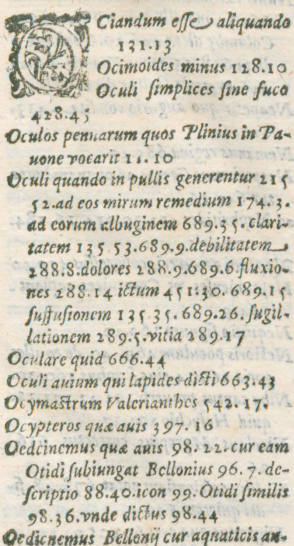 OCiandum esse aliquando
131.13
Ocimoides minus 128.10
Oculi simplices sine fuco
428.45
Oculos pennarum quos Plinius in Pa-
uone vocarit 11.10
Oculi quando in pullis generentur 215
52.ad eos mirum remedium 174.3.
ad eorum albuginem 689.35.clari-
tatem 135.53.689.9.debilitatem
288.8.dolores 288.9.689.6.fluxio-
nes 288.14 ictum 451.30.689.15
suffusionem 135.35.689.26.sugil-
lationem 289.5.vitia 289.17
Oculare quid 666.44
Oculi auium qui lapides dicti 663.43
Ocymastrum Valerianthes 542.17.
Ocypteros quæ auis 397.16
Oedcinemus quæ auis 98.22.cur eam
Otidi subiungat Bellonius 96.7.de-
scriptio 88.40.icon 99.Otidi similis
98.36.vnde dictus 98.44
Oedicnemus Bellonij cur aquaticis an-